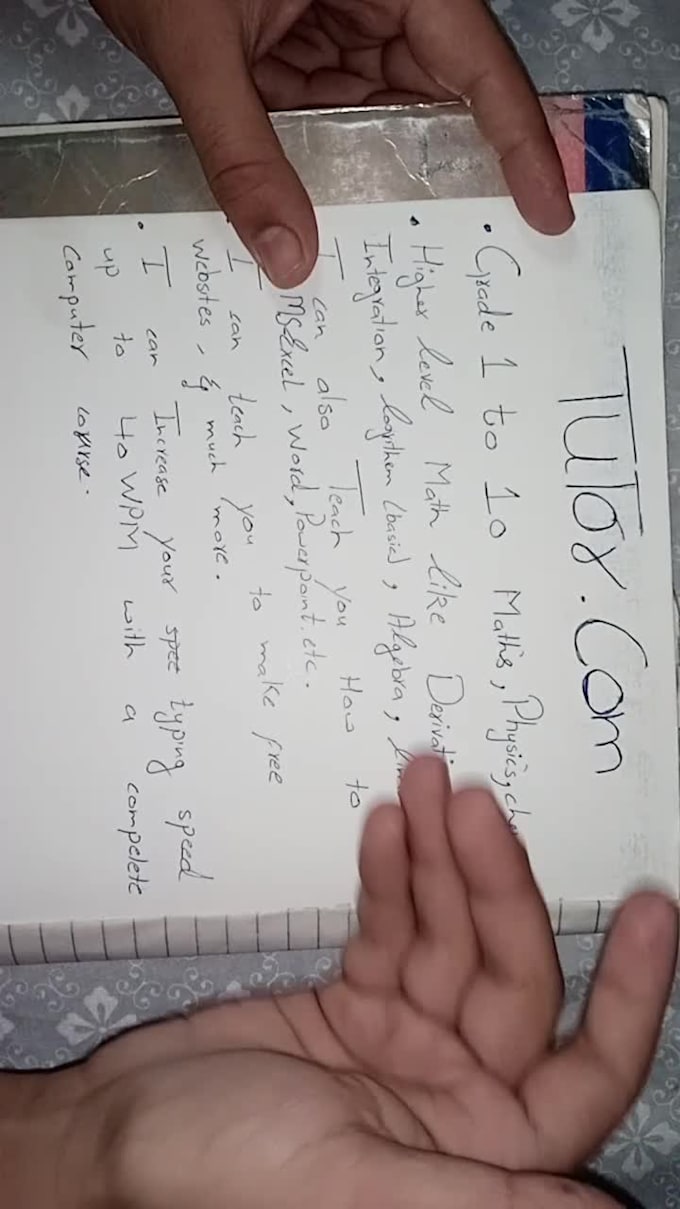 TUTOR.Com
• Grade 1 to 10 Maths, Physics, che
• Higher level Math like Derivati
Integration, Logrithem (basic), Algebra, lim
I can also Teach you How to
MS-Excel, Word, Powerpoint.etc.
I can teach you to make free
webstes, & much more.
• I can Increase your spee typing speed
up to 40 WPM with a compelete
Computer course.